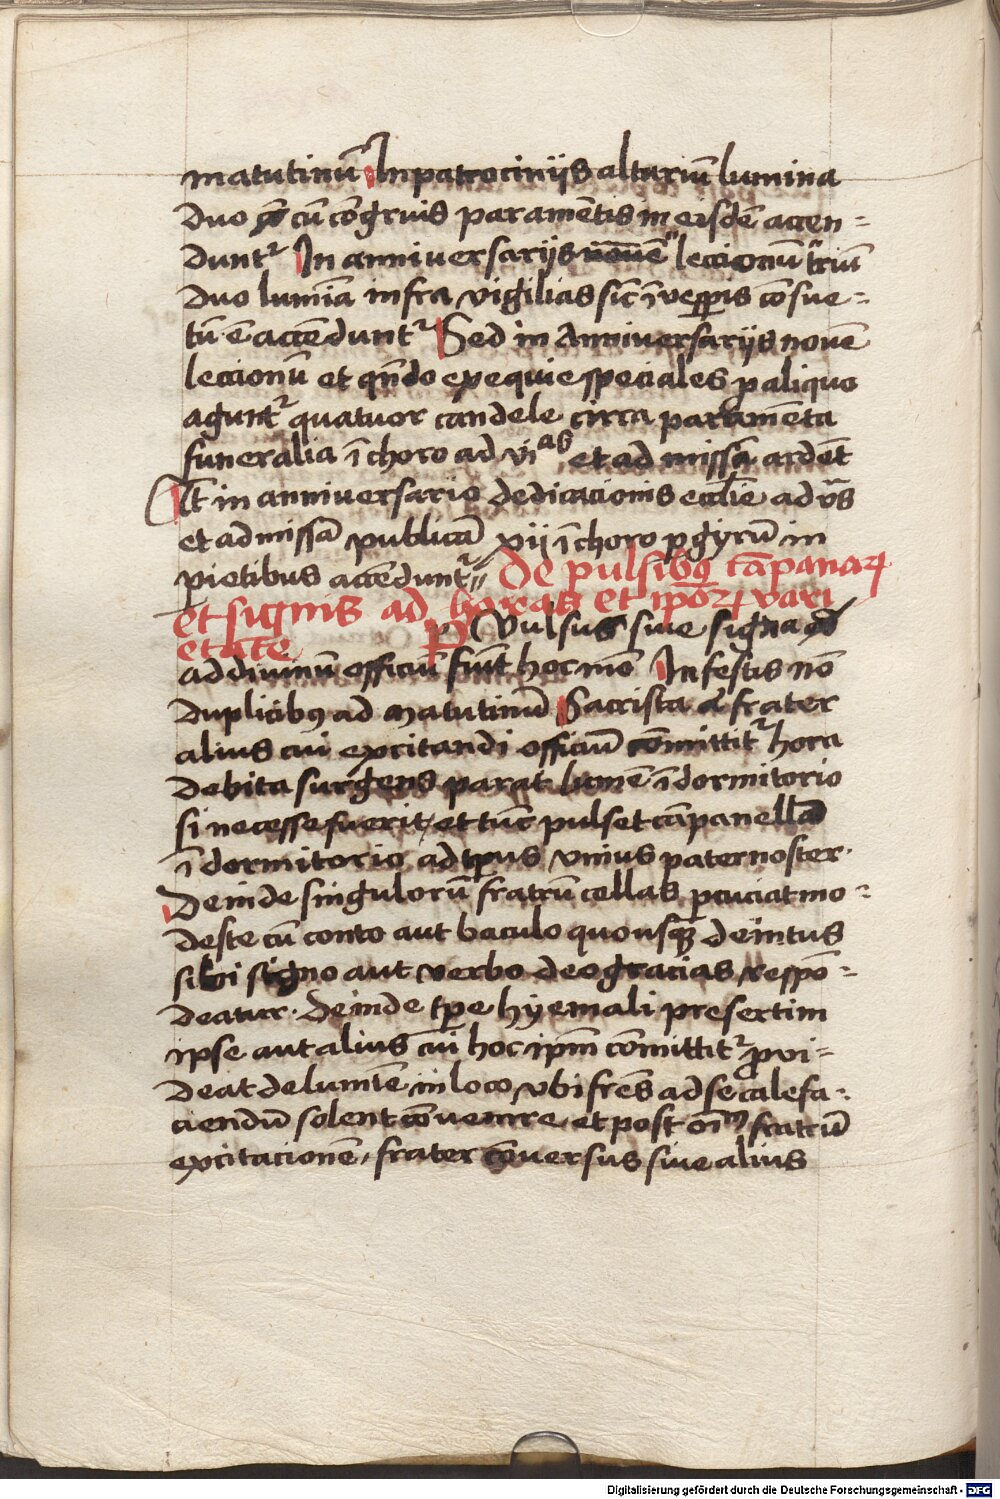 matutinū In patrociniis altariū lumina
duo cū cōgruis paramētis in eisdē accen=
duntr In anniversariis leccionū triū
duo lumīa infra vigilias sic ī vesperis cōsue=
tū ē accēduntr Sed in Anniversariis novē
leccionū et qn̄do exequie speciales p aliquo
aguntr quatuor candele circa paramēta
funeralia ī choro ad viab et ad missā ardēt
At in anniversario dedicacionis ecclīe ad vrās
et ad missā publicā xii ī choro p gyrū in
pietibus accēduntr De pulsibꝰ cāpanaꝝ
et signis ad horas et ipōꝝ vari
etate P Pulsus sive signa
ad divinū officiū fiūt hoc mō In festis nō
duplicibꝰ ad Matutinū Sacrista aut frater
alius cui excitandi officiū cōmittitr hora
debita surgens parat lumē ī dormitorio
si necesse fuerit, et tūc pulset cāpanellā
ī dormitorio ad tp̄us unius pater noster.
Deinde singulorū fratrū cellas pcuciat mo=
deste cū conto aut baculo quousqꝫ deintus
sibi signo aut verbo deogracias respō=
deatur. Deinde tp̄e hyemali presertim
ipse aut alius cui hoc ip̄m cōmittitr pvi=
deat de lumīe in loco ubi frēs ad se calefa=
ciendū solent cōvenire, et post oīm fratrū
excitacionē, frater cōversus sive alius
Digitalisierung gefördert durch die Deutsche Forschungsgemeinschaft - DFG